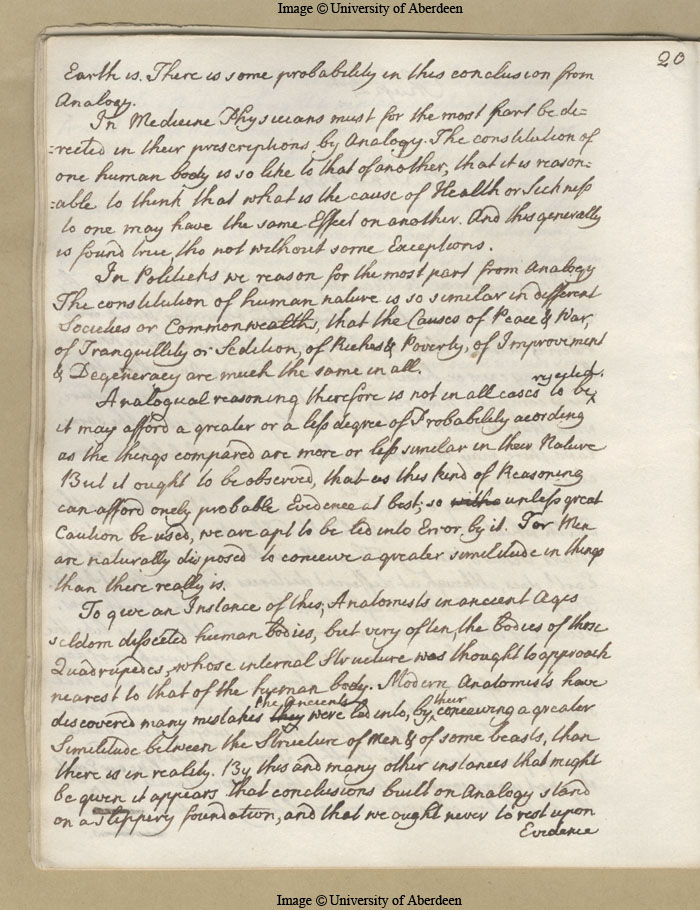 Image © University of Aberdeen
20
Earth is. There is some probability in this conclusion from
Analogy.
In Medicine Physicians must for the most part be di=
=rected in their prescriptions by Analogy. The constitution of
one human body is so like to that of another, that it is reason=
=able to think that what is the cause of Health or Sickness
to one may have the same Effect on another. And this generally
is found true tho not without some Exceptions.
In Politicks we reason for the most part from Analogy
The constitution of human nature is so similar in different
Societies or Commonwealths, that the Causes of Peace & War,
of Tranquillity or Sedition, of Riches & Poverty, of Improvement
& Degeneracy are much the same in all.
Analogical reasoning therefore is not in all cases to be rejected.
it may afford a greater or a less degree of Probability acording
as the things compared are more or less similar in their Nature
But it ought to be observed, that as this kind of Reasoning
can afford onely probable Evidence at best, so unless great
Caution be used, we are apt to be led into Error by it. For Men
are naturally disposed to conceive a greater similitude in things
than there really is.
To give an Instance of this, Anatomists in ancient Ages
seldom dissected human bodies, but very often, the bodies of those
Quadrupedes, whose internal Structure was thought to approach
nearest to that of the human body. Modern Anatomists have
discovered many mistakes they the Ancients were led into, by their conceiving a greater
Similitude between the Structure of Men & of some beasts, than
there is in reality. By this and many other instances that might
be given it appears that conclusions built on Analogy stand
on a slippery foundation, and that we ought never to rest upon
Evidence
Image © University of Aberdeen